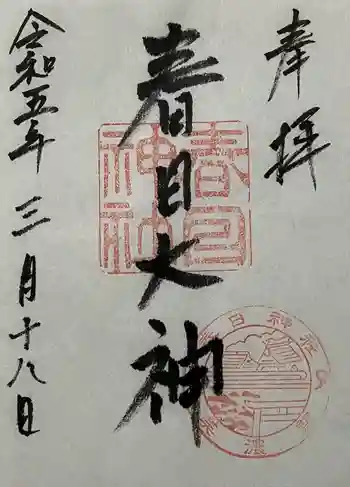 奉拝
春日大神
令和五年三月十八日
春日神社